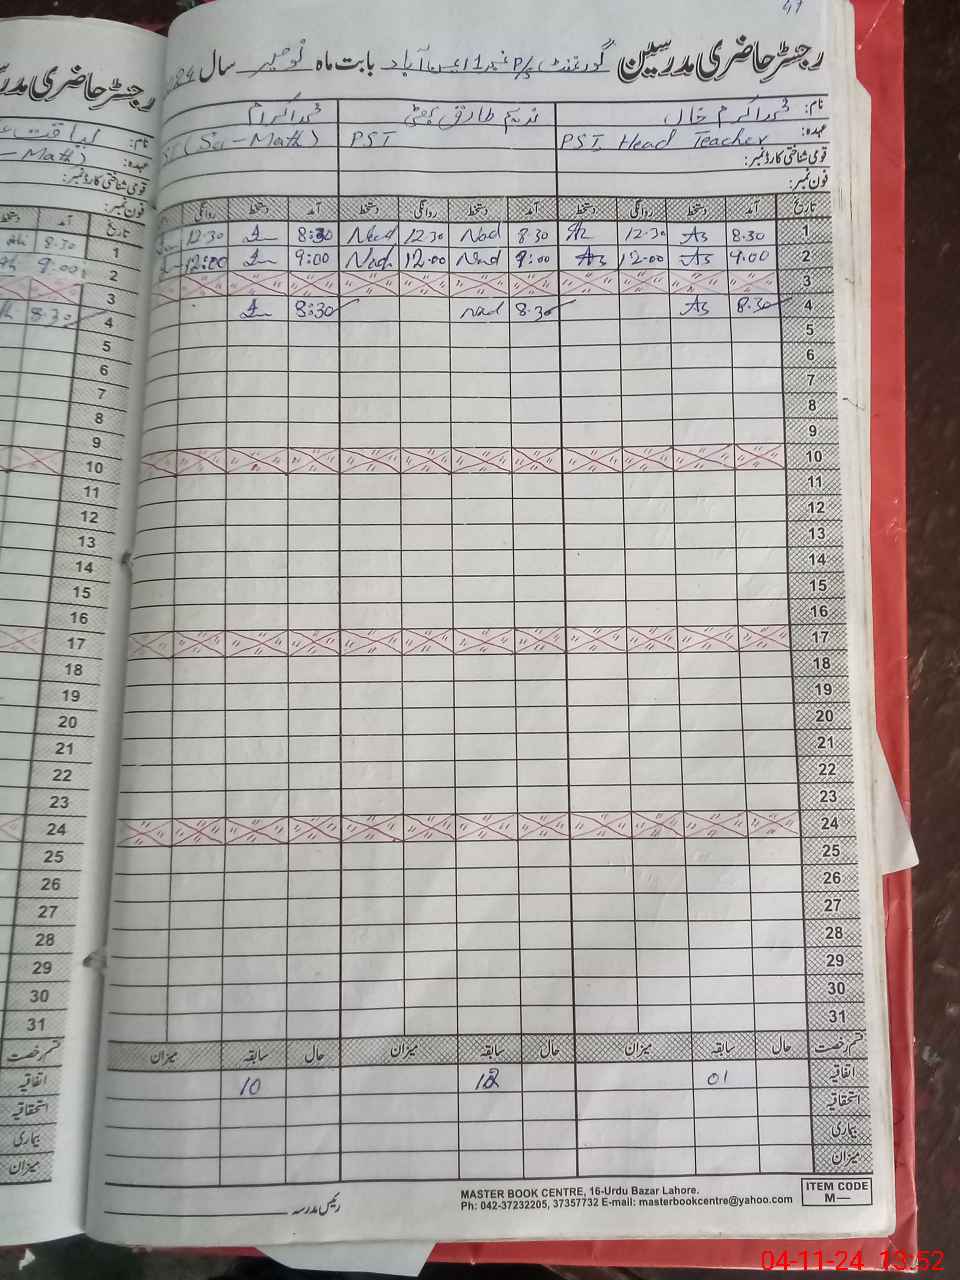 47
رجسٹر حاضری مدرسین گورنمنٹ P/S نمبر 1 ایمن آباد بابت ماہ نومبر سال 2024
نام: محمد اکرم خان ندیم طارق بھٹی محمد اکرام
عہدہ: PST, Head Teacher PST (Sci-Math)
قومی شناختی کارڈ نمبر:
فون نمبر:
تاریخ آمد دستخط روانگی دستخط آمد دستخط روانگی دستخط آمد دستخط روانگی
1 8.30 As 12.30 8.30 Nad 12.30 8:30 12:30
2 9.00 As 12.00 As 9:00 Nad 12.00 Nad 9:00 12:00
3
4 8.30 As 8.30 Nad 8:30
5
6
7
8
9
10
11
12
13
14
15
16
17
18
19
20
21
22
23
24
25
26
27
28
29
30
31
قسم رخصت حال سابقہ میزان حال سابقہ میزان حال سابقہ میزان
اتفاقیہ 01 12 10
استحقاقیہ
بیماری
میزان
رئیس مدرسہ
MASTER BOOK CENTRE, 16-Urdu Bazar Lahore.
Ph: 042-37232205, 37357732 E-mail: masterbookcentre@yahoo.com
ITEM CODE
M—
رجسٹر حاضری مدرسین
نام: لیاقت
عہدہ: - Math)
قومی شناختی کارڈ نمبر:
فون نمبر:
تاریخ آمد دستخط
1 8.30
2 9:00
3
4 8.30
5
6
7
8
9
10
11
12
13
14
15
16
17
18
19
20
21
22
23
24
25
26
27
28
29
30
31
قسم رخصت
اتفاقیہ
استحقاقیہ
بیماری
میزان
04-11-24 13:52